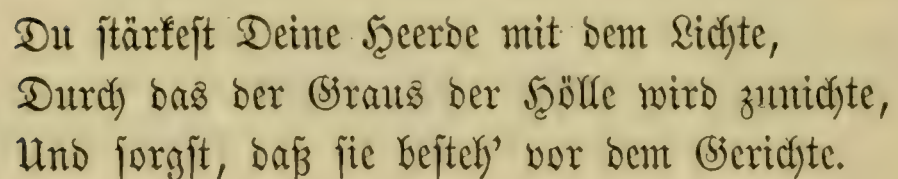 Du stärkest Deine Heerde mit dem Lichte,
Durch das der Graus der Hölle wird zunichte,
Und sorgst, daß sie besteh’ vor dem Gerichte.